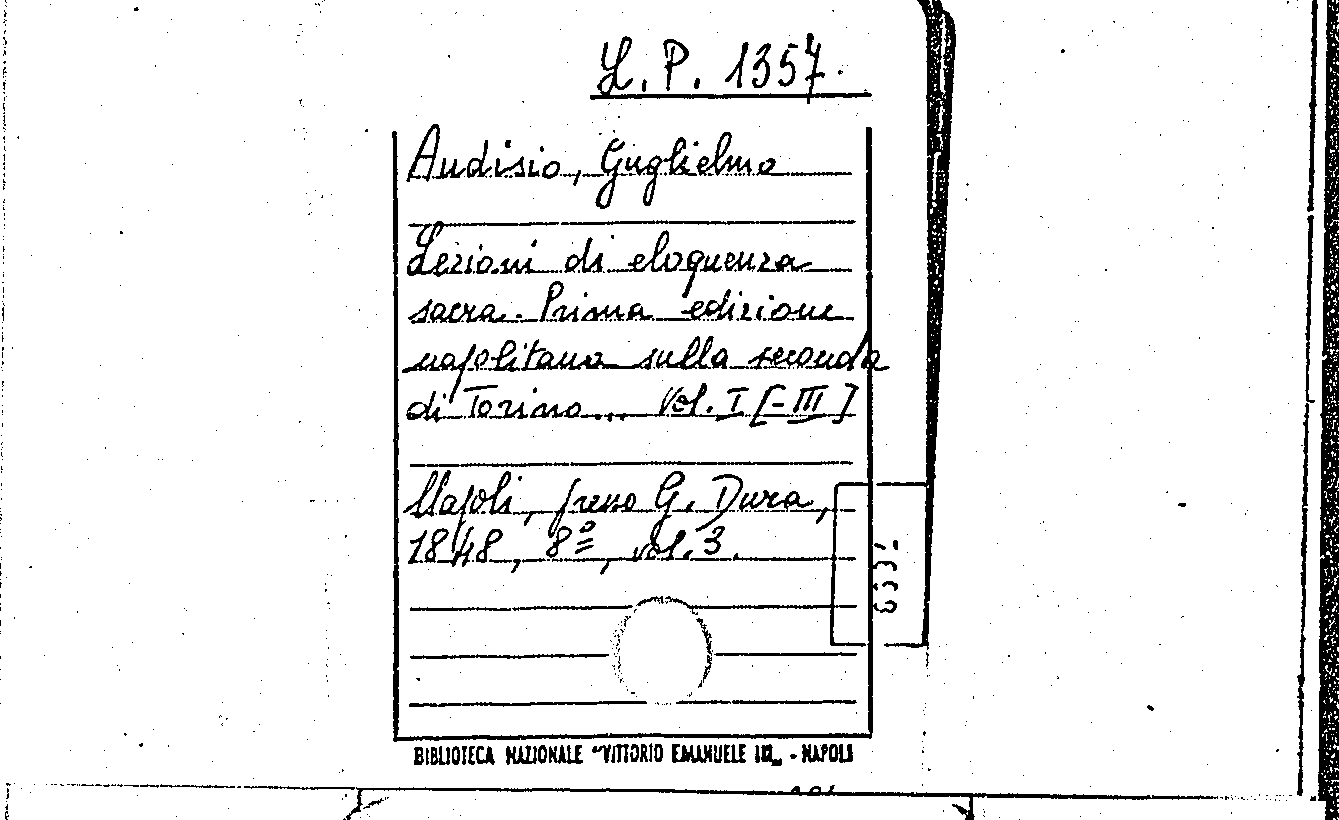 L. P. 1357.
Audisio, Guglielmo
Lezioni di eloquenza
sacra. Prima edizione
napolitana sulla seconda
di Torino... Vol. I [-III]
Napoli, presso G. Dura,
1848, 8º, vol. 3.
BIBLIOTECA NAZIONALE "VITTORIO EMANUELE III„ - NAPOLI